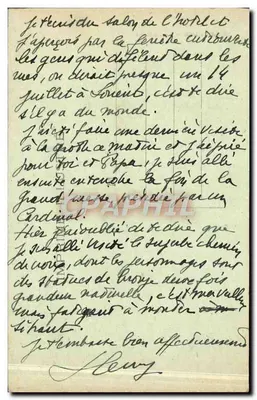 Je t'écris du salon de l'hôtel et
j'aperçois par la fenêtre entrouverte
les gens qui défilent dans les
rues, on dirait presque un 14
juillet à Lorient, c'est te dire
s'il y a du monde.
J'ai été faire une dernière visite
à la grotte ce matin et j'ai prié
pour toi et Papa, je suis allé
ensuite entendre la fin de la
grand messe présidée par un
Cardinal.
Hier j'ai oublié de te dire que
je suis allé visiter le superbe chemin
de croix, dont les personnages sont
des statues de bronze deux fois
grandeur naturelle, c'est merveilleux
mais fatigant à monter
si haut.
Je t'embrasse bien affectueusement
Henry